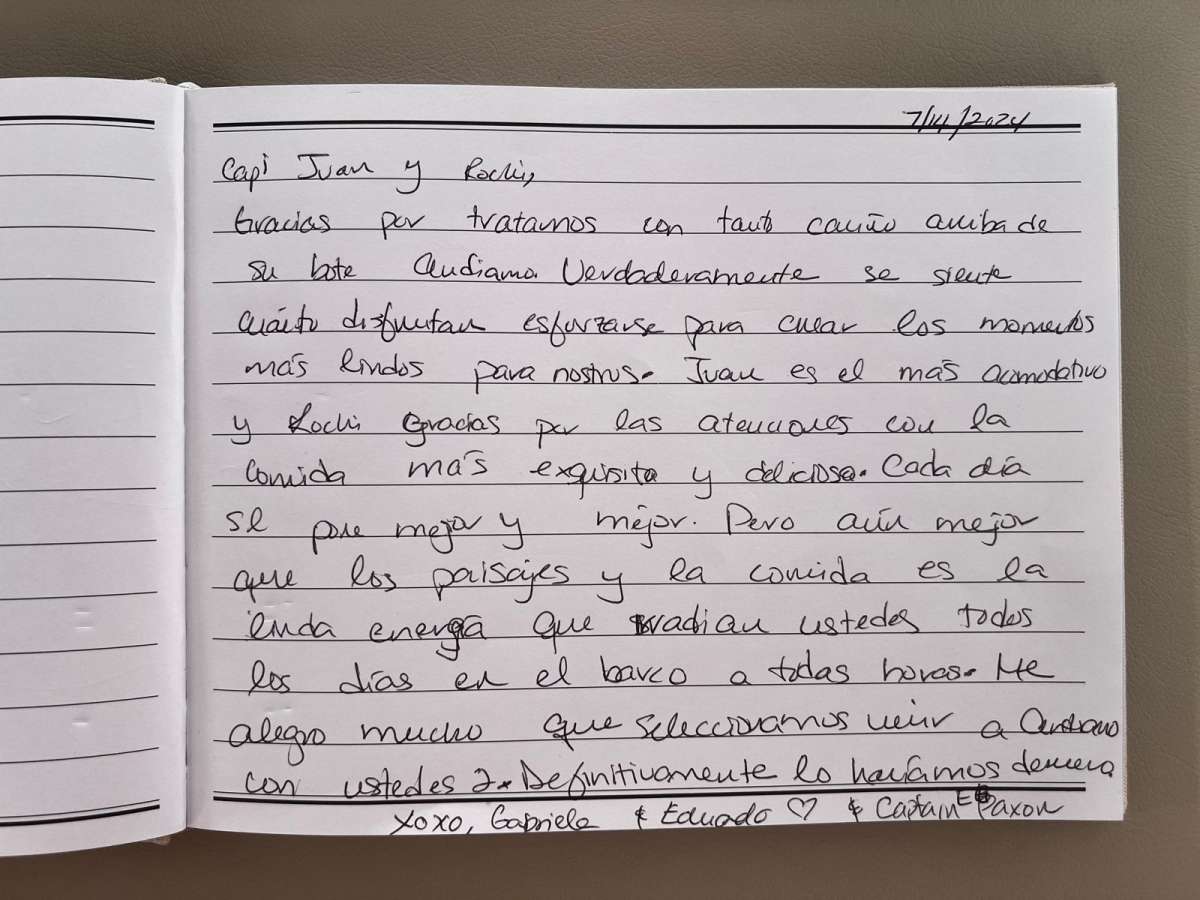 7/14/2024
Capi Juan y Rochi,
Gracias por tratarnos con tanto cariño arriba de
su bote Andiamo. Verdaderamente se siente
cuánto disfrutan esforzarse para crear los momentos
más lindos para nostrus. Juan es el más acomodativo
y Rochi Gracias por las atenciones con la
comida más exquisita y deliciosa. Cada día
se pone mejor y mejor. Pero aún mejor
que los paisajes y la comida es la
linda energía que radian ustedes todos
los días en el barco a todas horas. Me
alegro mucho que seleccionamos venir a Andiamo
con ustedes 2. Definitivamente lo haríamos denuevo
xoxo, Gabriela & Eduardo ♡ & Captain E Paxon